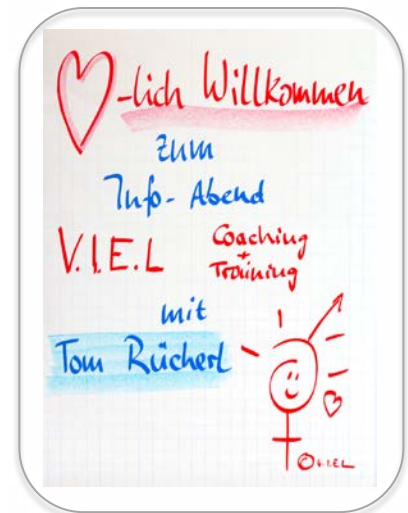 -lich Willkommen
zum
Info-Abend
V.I.E.L Coaching
+
Training
mit
Tom Rüchert
©V.I.E.L